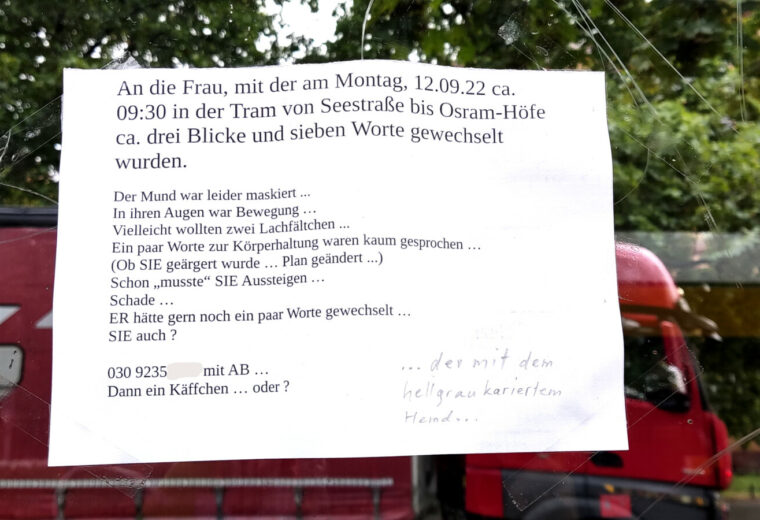 An die Frau, mit der am Montag, 12.09.22 ca.
09:30 in der Tram von Seestraße bis Osram-Höfe
ca. drei Blicke und sieben Worte gewechselt
wurden.
Der Mund war leider maskiert ...
In ihren Augen war Bewegung …
Vielleicht wollten zwei Lachfältchen ...
Ein paar Worte zur Körperhaltung waren kaum gesprochen …
(Ob SIE geärgert wurde … Plan geändert ...)
Schon „musste“ SIE Aussteigen …
Schade …
ER hätte gern noch ein paar Worte gewechselt …
SIE auch ?
030 9235 mit AB …
Dann ein Käffchen … oder ?
... der mit dem
hellgrau kariertem
Hemd...